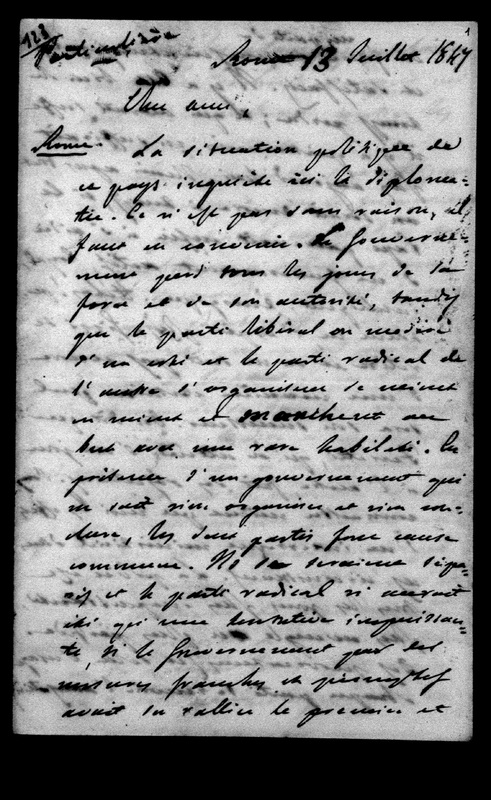 128
Particulière
1
Rome 13 Juillet 1847
Cher ami,
Rome. La situation politique de
ce pays inquiète ici la diploma-
tie. Ce n'est pas sans raison, il
faut en convenir. Le Gouverne-
ment perd tous les jours de sa
force et de son autorité, tandis
que le parti libéral ou modéré
d'un coté et le parti radical de
l'autre s'organisent de mieux
en mieux et marchent au
but avec une rare habileté. En
présence d'un gouvernement qui
ne sait rien organiser et rien con-
clure, les deux partis font cause
commune. Ils se seraient sépa-
rés et le parti radical n'aurait
été qu'une tentative impuissan-
te, si le Gouvernement par des
mesures franches et
avait su rallier le premier et